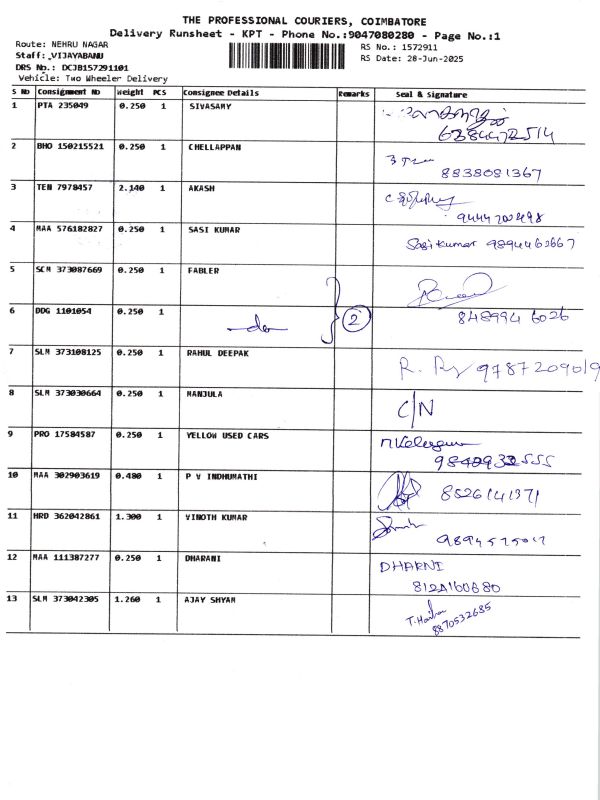 THE PROFESSIONAL COURIERS, COIMBATORE
Delivery Runsheet - KPT - Phone No.:9047080280 - Page No.:1
Route: NEHRU NAGAR RS No.: 1572911
Staff: VIJAYABANU RS Date: 28-Jun-2025
DRS No.: DCJB157291101
Vehicle: Two Wheeler Delivery
S No Consignment No Weight PCS Consignee Details Remarks Seal & Signature
1 PTA 235049 0.250 1 SIVASAMY
6384472514
2 BHO 150215521 0.250 1 CHELLAPPAN
8838081367
3 TEN 7978457 2.140 1 AKASH
4 MAA 576182827 0.250 1 SASI KUMAR Sasi kumar 9894462667
5 SCM 373087669 0.250 1 FABLER
6 DDG 1101054 0.250 1 -do- 2 848994 6026
7 SLM 373108125 0.250 1 RAHUL DEEPAK R. 9787209019
8 SLM 373030664 0.250 1 MANJULA C/N
9 PRO 17584587 0.250 1 YELLOW USED CARS
10 MAA 302903619 0.480 1 P V INDHUMATHI 8526141371
11 HRD 362042861 1.300 1 VINOTH KUMAR
12 MAA 111387277 0.250 1 DHARANI DHARNI
8124160680
13 SLM 373042305 1.260 1 AJAY SHYAM
8870532685